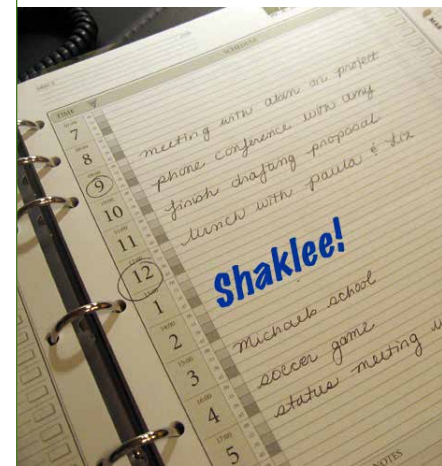 SCHEDULE
TIME
7
meeting with alan on project
8
phone conference with amy
9
finish drafting proposal
10
lunch with paula & liz
11
12
Shaklee!
1
2
michaels school
3
soccer game
4
status meeting
5
NOTES